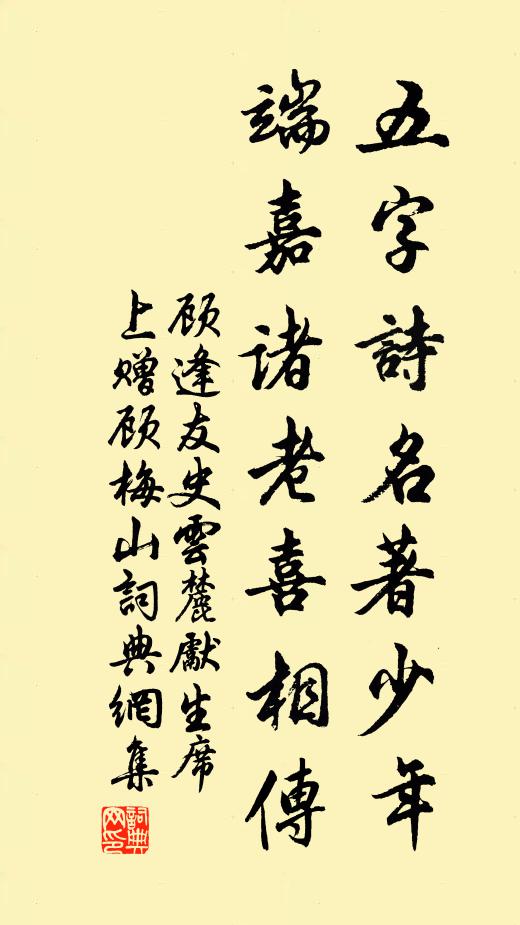 五字詩名著少年
端嘉诸老喜相傳
顾逢友史雲麓獻生席
上赠顾梅山詞典網集
詞典
网印